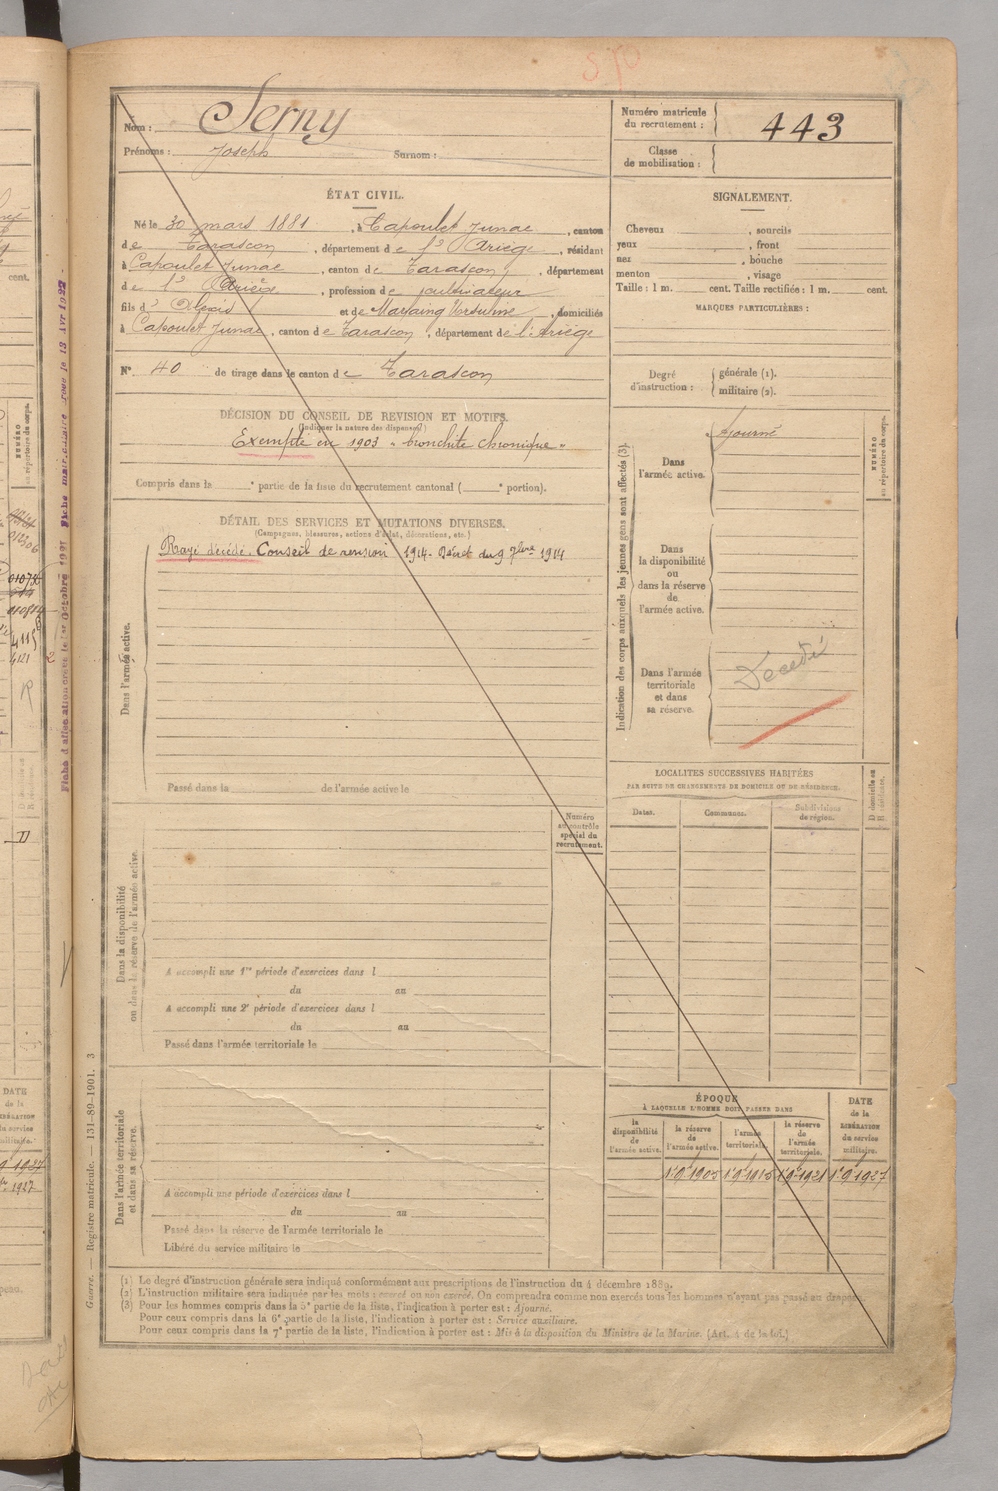 Nom : Serny
Prénoms : Joseph Surnom :
Numéro matricule du recrutement : 443
Classe de mobilisation :
ÉTAT CIVIL.
Né le 30 mars 1881, à Capoulet Junac, canton
de Tarascon, département de l'Ariège, résidant
à Capoulet Junac, canton de Tarascon, département
de l'Ariège, profession de cultivateur
fils d' Alexis et de Marsaing Ursuline, domiciliés
à Capoulet Junac, canton de Tarascon, département de l'Ariège
N° 40 de tirage dans le canton de Tarascon
DÉCISION DU CONSEIL DE REVISION ET MOTIFS.
(Indiquer la nature des dispenses)
Exempté en 1903 " bronchite chronique "
Compris dans la e partie de la liste du recrutement cantonal ( e portion).
DÉTAIL DES SERVICES ET MUTATIONS DIVERSES.
(Campagnes, blessures, actions d'éclat, décorations, etc.)
Rayé décédé. Conseil de revision 1914. Décret du 9 7bre 1914
Dans l'armée active.
Passé dans la de l'armée active le
Numéro au contrôle spécial du recrutement.
Dans la disponibilité ou dans la réserve de l'armée active.
A accompli une 1re période d'exercices dans l
du au
A accompli une 2e période d'exercices dans l
du au
Passé dans l'armée territoriale le
Dans l'armée territoriale et dans sa réserve.
A accompli une période d'exercices dans l
du au
Passé dans la réserve de l'armée territoriale le
Libéré du service militaire le
SIGNALEMENT.
Cheveux , sourcils
yeux , front
nez , bouche
menton , visage
Taille : 1 m. cent. Taille rectifiée : 1 m. cent.
MARQUES PARTICULIÈRES :
Degré d'instruction : générale (1).
militaire (2).
Indication des corps auxquels les jeunes gens sont affectés (3).
NUMÉRO au répertoire du corps.
Dans l'armée active. Ajourné
Dans la disponibilité ou dans la réserve de l'armée active.
Dans l'armée territoriale et dans sa réserve. Décédé
LOCALITÉS SUCCESSIVES HABITÉES
PAR SUITE DE CHANGEMENTS DE DOMICILE OU DE RÉSIDENCE.
Dates. Communes. Subdivisions de région. D domicile ou R résidence.
ÉPOQUE
À LAQUELLE L'HOMME DOIT PASSER DANS
la disponibilité de l'armée active. la réserve de l'armée active. l'armée territoriale. la réserve de l'armée territoriale. DATE de la LIBÉRATION du service militaire.
1 9 1905 1 9 1915 1 9 1921 1 9 1927
(1) Le degré d'instruction générale sera indiqué conformément aux prescriptions de l'instruction du 4 décembre 1889.
(2) L'instruction militaire sera indiquée par les mots : exercé ou non exercé. On comprendra comme non exercés tous les hommes n'ayant pas passé au drapeau.
(3) Pour les hommes compris dans la 5e partie de la liste, l'indication à porter est : Ajourné.
Pour ceux compris dans la 6e partie de la liste, l'indication à porter est : Service auxiliaire.
Pour ceux compris dans la 7e partie de la liste, l'indication à porter est : Mis à la disposition du Ministre de la Marine. (Art. 4 de la loi.)
Guerre. — Registre matricule. — 131-89-1901. 3